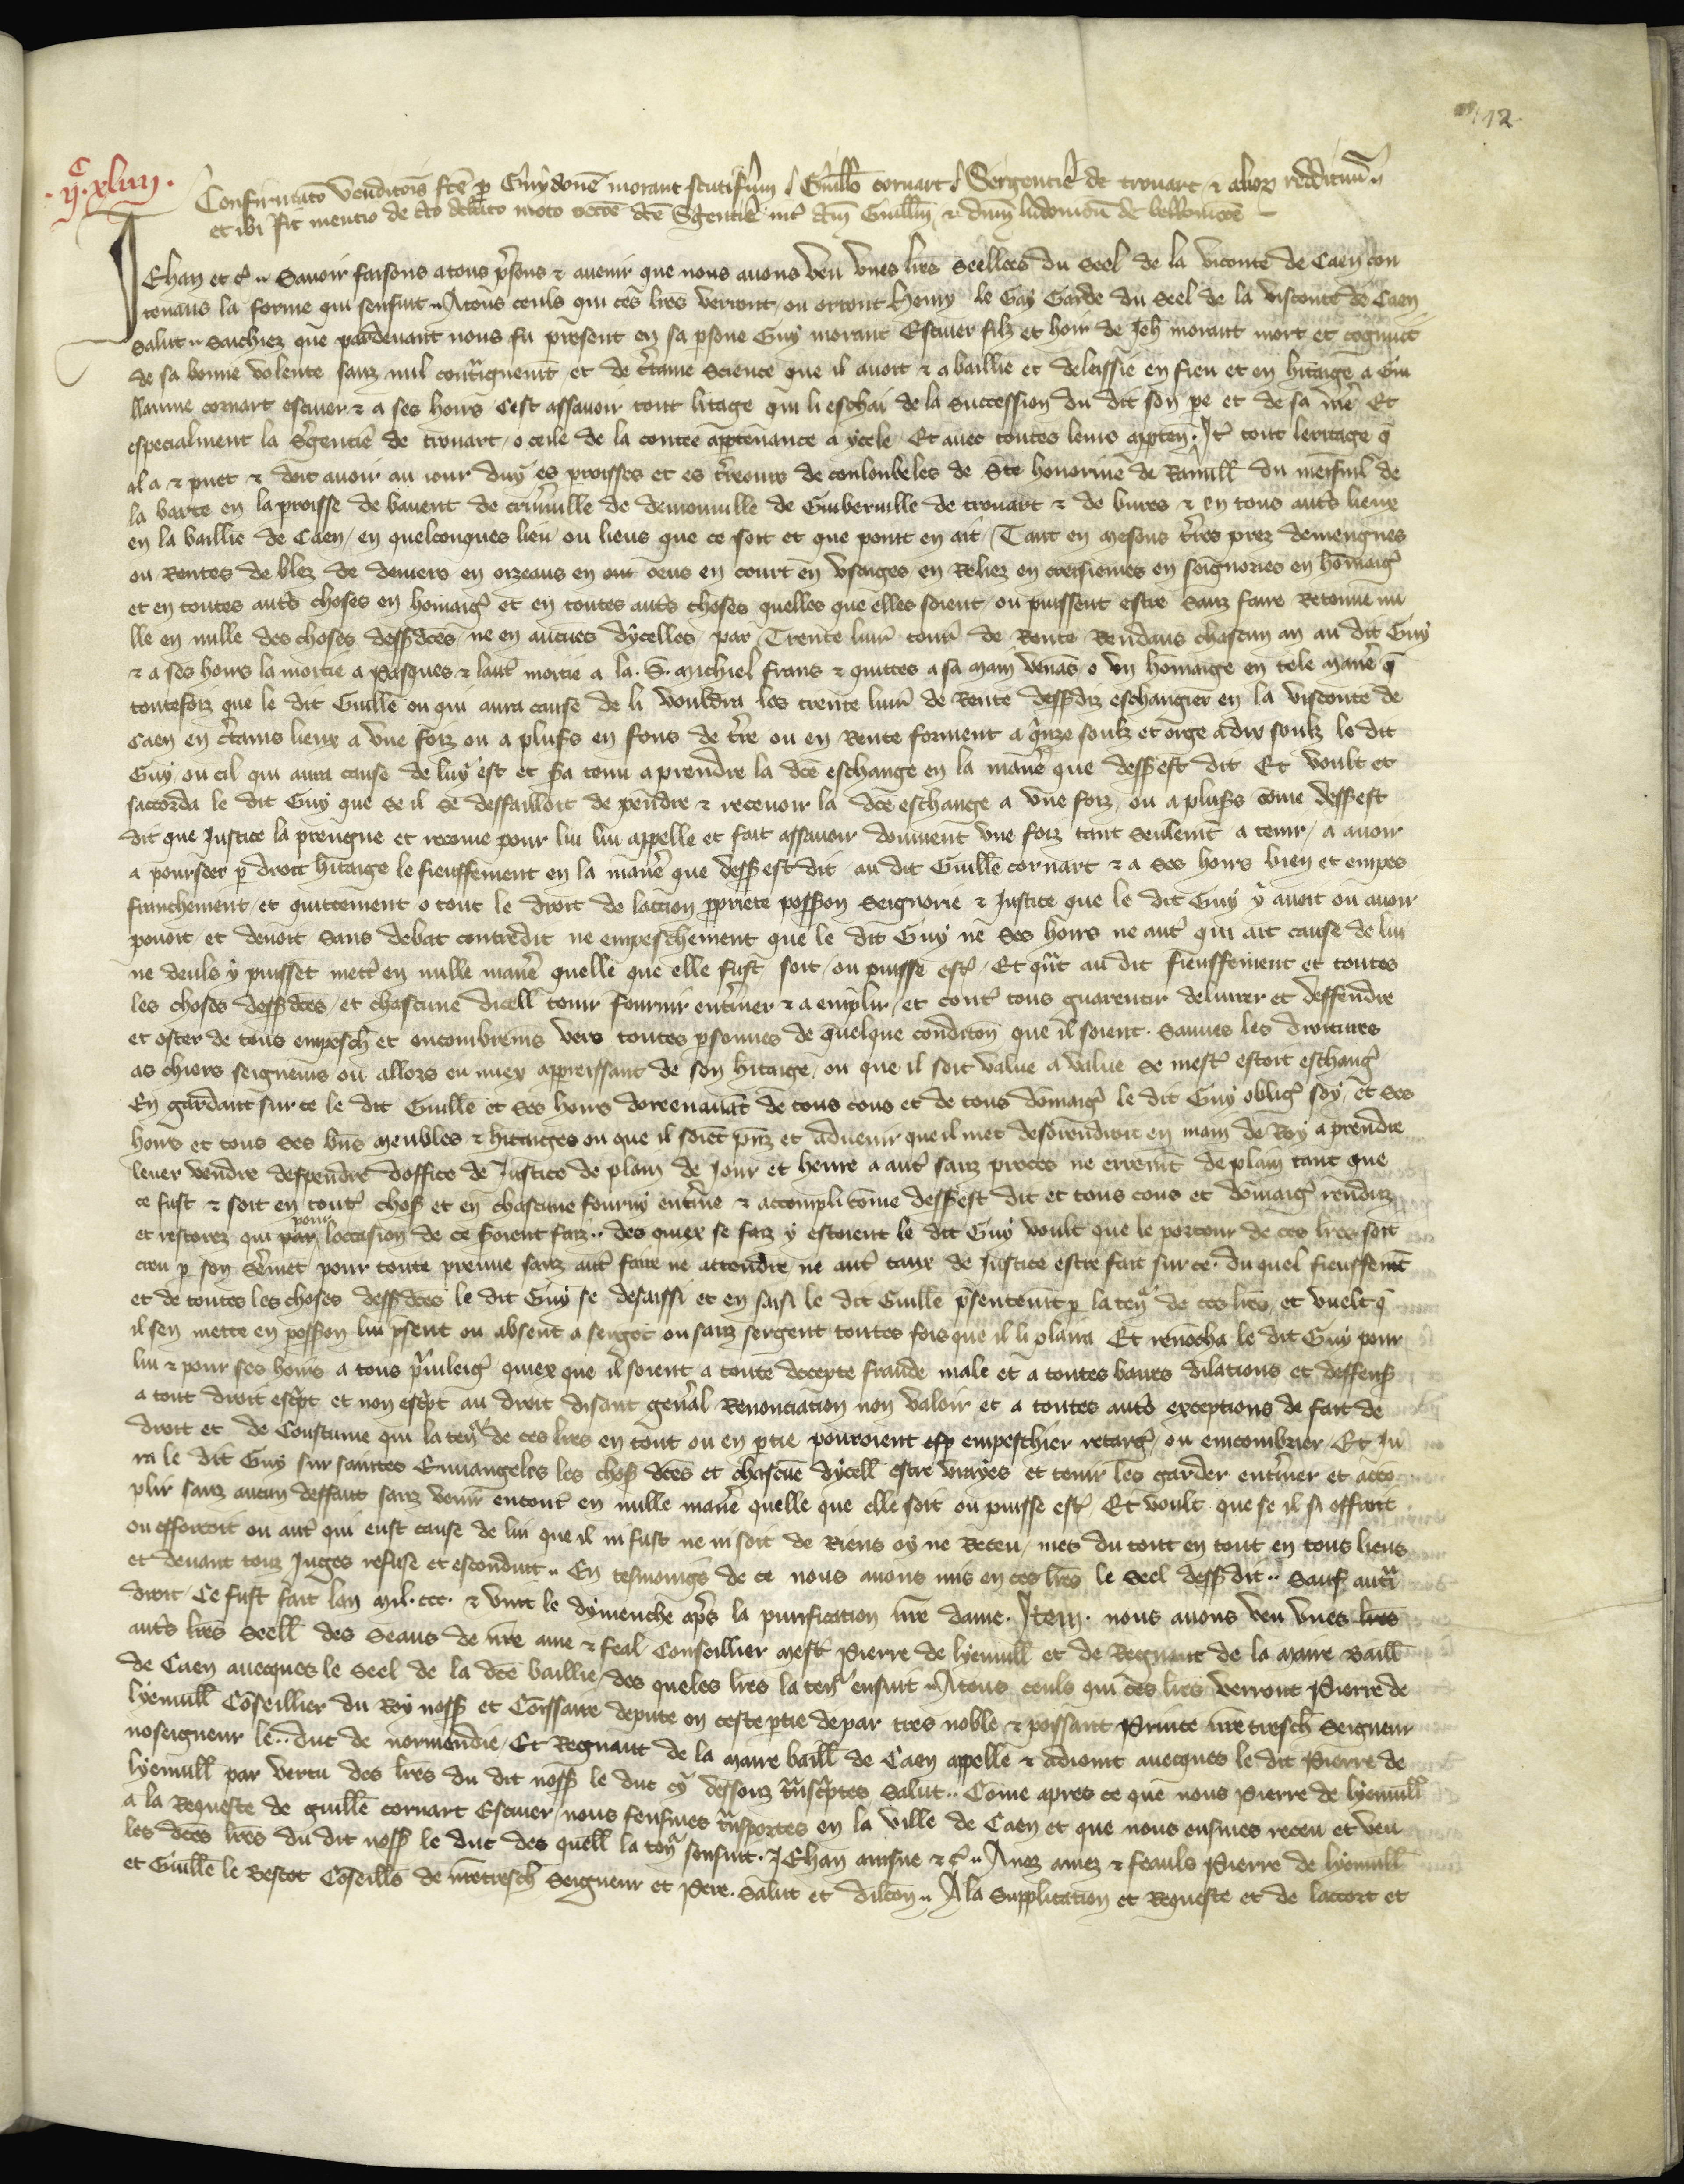 112
.ijc.xliiij.
Confirmatio venditionis fcē p Guydonē morant scutifm Guillo cornart Sergentie de trouart & alior reddituū
et ibi fit mentio de debato moto occōe dcē Sgentie int dcm Guillm & dnm ludouicū de bellomōte
Jehan et cͤ. Sauoir faisons a tous pñs & auenir que nous auons veu vnes lres seellees du seel de la viconte de Caen con
tenans la forme qui sensuit. A tous ceuls qui ces lres verront ou orront Henry le Gay Garde du seel de la visconte de Caen
Salut. Sachiez que pardeuant nous fu present en sa psone Guy morant Escuier filz et hoir de Jeh morant mort et cognut
de sa bonne volente sanz nul contraignemt et de ctaine science que il auoit & a baillie et delessie en fieu et en hitaige a Gui
llaume cornart escuier & a ses hoirs cest assauoir tout litage qui li eschai de la succession du dit son pe et de sa me Et
especialment la sgentie de trouart o celle de la contee aptenance a ycele Et auec toutes leurs apten. It tout leritage q̄
il a & puet & doit auoir au iour duy es proisses et es treours de coulonbeles de Ste honorine de Ranuill du mesnil de
la barte en la proisse de bauent de de demouuille de Guiberuille de trouart & de bures & en tous auts lieux
en la baillie de Caen en quelconques lieu ou lieus que ce soit et que point en ait Tant en mesons tres prez demengnes
ou Rentes de blez de deniers en oyzeaus en oeus en court en vsaiges en Reliez en treisiemes en seignories en hōmaig
et en toutes auts choses en homaig et en toutes auts choses quelles que elles soient ou puissent estre sanz faire Retenue nu
lle en nulle des choses dessdcēs ne en aucues dycelles par Trente liurs tourn de Rente Rendans chascun an au dit Guy
& a ses hoirs la moitie a Pasques & laut moitie a la S. Michiel frans & quittes a sa main venās o vn hōmaige en tele manē q̄
toutefoiz que le dit Guille ou qui aura cause de li vouldra les trente liurs de Rente dessdiz eschangier en la visconte de
Caen en ctains lieux a vne foiz ou a plusrs en fons de tre ou en Rente forment a qinze soulz et orge a dix soulz le dit
Guy ou cil qui aura cause de luy est et sa tenu a prendre la dcē eschange en la manē que dess est dit Et voult et
saccorda le dit Guy que se il se deffailloit de pendre & receuoir la dcē eschange a vne foiz ou a plusrs come dess est
dit que Justice la prengne et recoiue pour lui lui appelle et fait assauoir deuuement vne foiz tant seulemt a tenir a auoir
a pourseer p droit hitaige le fieuffement en la manē que dess est dit au dit Guille cornart & a ses hoirs bien et empes
franchement et quittement o tout le droit de laction ppriete possion Seignorie & Justice que le dit Guy y auoit ou auoir
pouoit et deuoit sans debat contredit ne empeschement que le dit Guy ne ses hoirs ne aut qui ait cause de lui
ne deuls y puisset mett en nulle manē quelle que elle fust soit ou puisse est Et qnt au dit fieuffement et toutes
les choses dessdcēs et chascune dicell tenir fournir entiner & a emplir et cont tous guarentir deliurer et deffendre
et oster de tous empesch et encombremēs vers toutes psonnes de quelque condiciō que il soient. Sauues les droitures
as chiers seigneurs ou allors en miex apparrissant de son hitaige ou que il soit value a value se mest estoit eschang
En gardant sur ce le dit Guille et ses hoirs doreenauāt de tous cous et de tous dōmaig le dit Guy oblig soy et ses
hoirs et tous ses bñs meubles & hitaiges ou que il soiēt pñz et aduenir que il met desorendroit en main de Roy a prendre
leuer vendre despendre doffice de Justice de plain de Jour et heure a aut sanz proces ne erremt de plain tant que
ce fust & soit en tout chos et en chascune fourny entine & accompli come dess est dit et tous cous et dōmaig renduz
et restorez qui pour loccasion de ce soient faiz.. des quiex se faiz y estoient le dit Guy voult que le porteur de ces lres soit
creu p son smēt pour toute preuue sanz aut faire ne attendre ne aut taux de Justice estre fait sur ce. du quel fieuffemēt
et de toutes les choses dessdcēs le dit Guy se desaissi et en saisi le dit Guille psentemt p la teñ de ces lres et vuelt q̄
il sen mette en possion lui psent ou absent a sergēt ou sanz sergent toutes fois que il li plaira Et renōcha le dit Guy pour
lui & pour ses hoirs a tous puileig quiex que il soient a toute decepte fraude male et a toutes baires dilations et deffens
a tout droit escpt et non escpt au droit disant genal Renonciation non valoir et a toutes auts exceptions de fait de
droit et de Coustume qui la teñ de ces lres en tout ou en ptie pouroient empeschier retarg ou emcombrier Et Ju
ra le dit Guy sur sainctes Euuangeles les chos dcēs et chascue dycell estre vrayes et tenir les garder entiner et acco
plir sanz aucun deffaut sanz venir encont en nulle manē quelle que elle soit ou puisse est Et voult que se il si offroit
ou efforcoit ou aut qui eust cause de lui que il ni fust ne ni soit de Riens oy ne Receu mes du tout en tout en tous lieus
et deuant touz Juges refuse et esconduit. En tesmoing de ce nous auons mis en ces lres le seel dess dit.. Sauf autri
droit. Ce fust fait lan mil. ccc. & vint le dymenche aps la purification nre dame. Item. nous auons veu vnes lres
auts lres Seell des Seaus de nre ame & feal Conseillier mest Pierre de lyeuuill et de Regnaut de la maire Baill
de Caen auecques le Seel de la dcē baillie des queles lres la teñ ensuit. A tous ceuls qui ces lres verront Pierre de
lyeuuill Cōseillier du Roy noss et Cōissaire depute en ceste ptie depar tres noble & poissant Prince nre tresch Seigneur
noseigneur le.. duc de normendie Et Regnaut de la maire baill de Caen appelle & adioint auecques le dit Pierre de
lyeuuill par vertu des lres du dit noss le duc cy dessouz tnscptes Salut.. Come apres ce que nous Pierre de lyeuuill
a la Requeste de guille cornart Escuier nous feusmes tnsportes en la ville de Caen et que nous eusmes receu et veu
les dcēs lres du dit noss le duc des quell la teñ sensuit. JEhan ainsne & c. Auez amez & feauls Pierre de lyeuuill
et Guille le Bescot Cōseills de nre tresch Seigneur et Pere. Salut et dilcōn. A la Supplication et Requeste et de laccort et